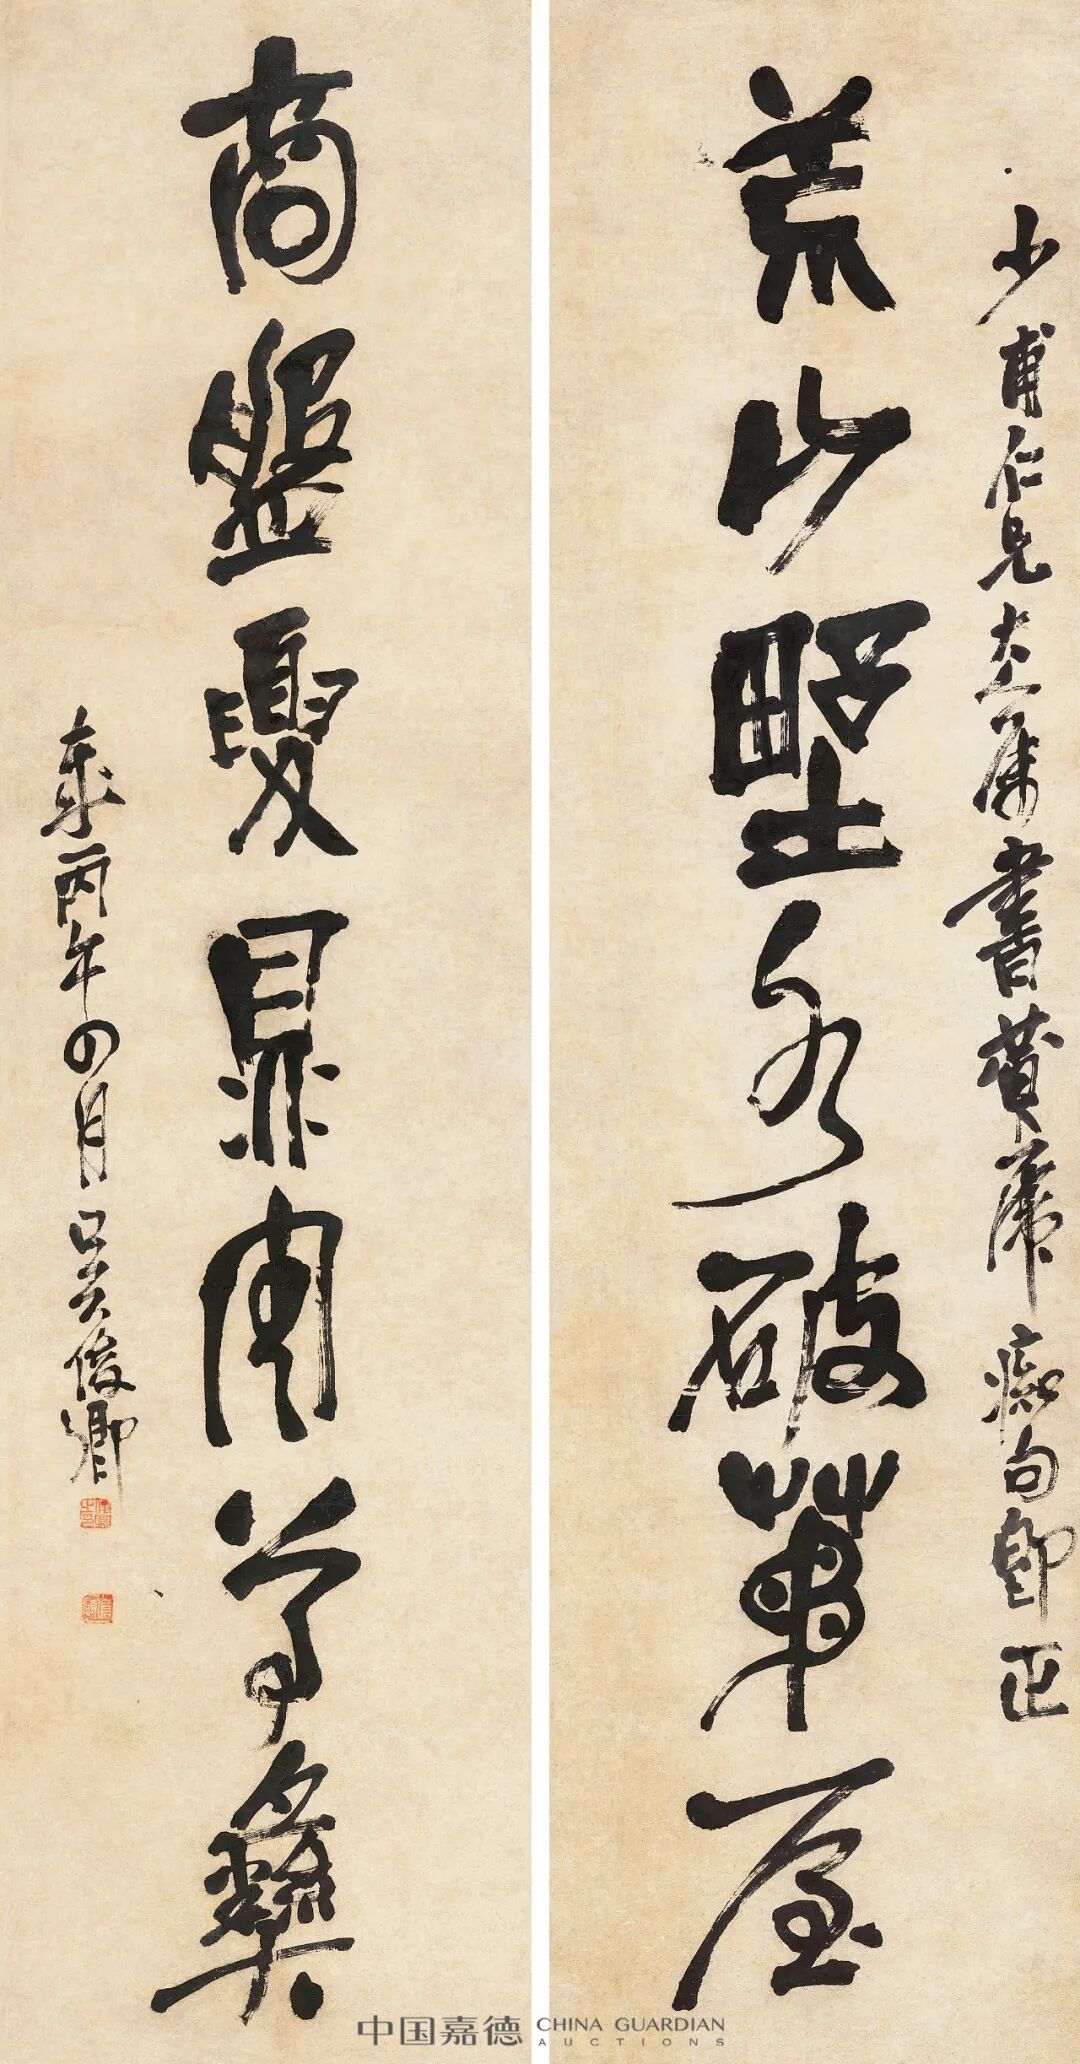 少甫仁兄大人属书费廉痴句即正
荒山野水破茅屋
商盘夏鼎周尊彝
岁丙午四月吴俊卿
中国嘉德 CHINA GUARDIAN
AUCTIONS